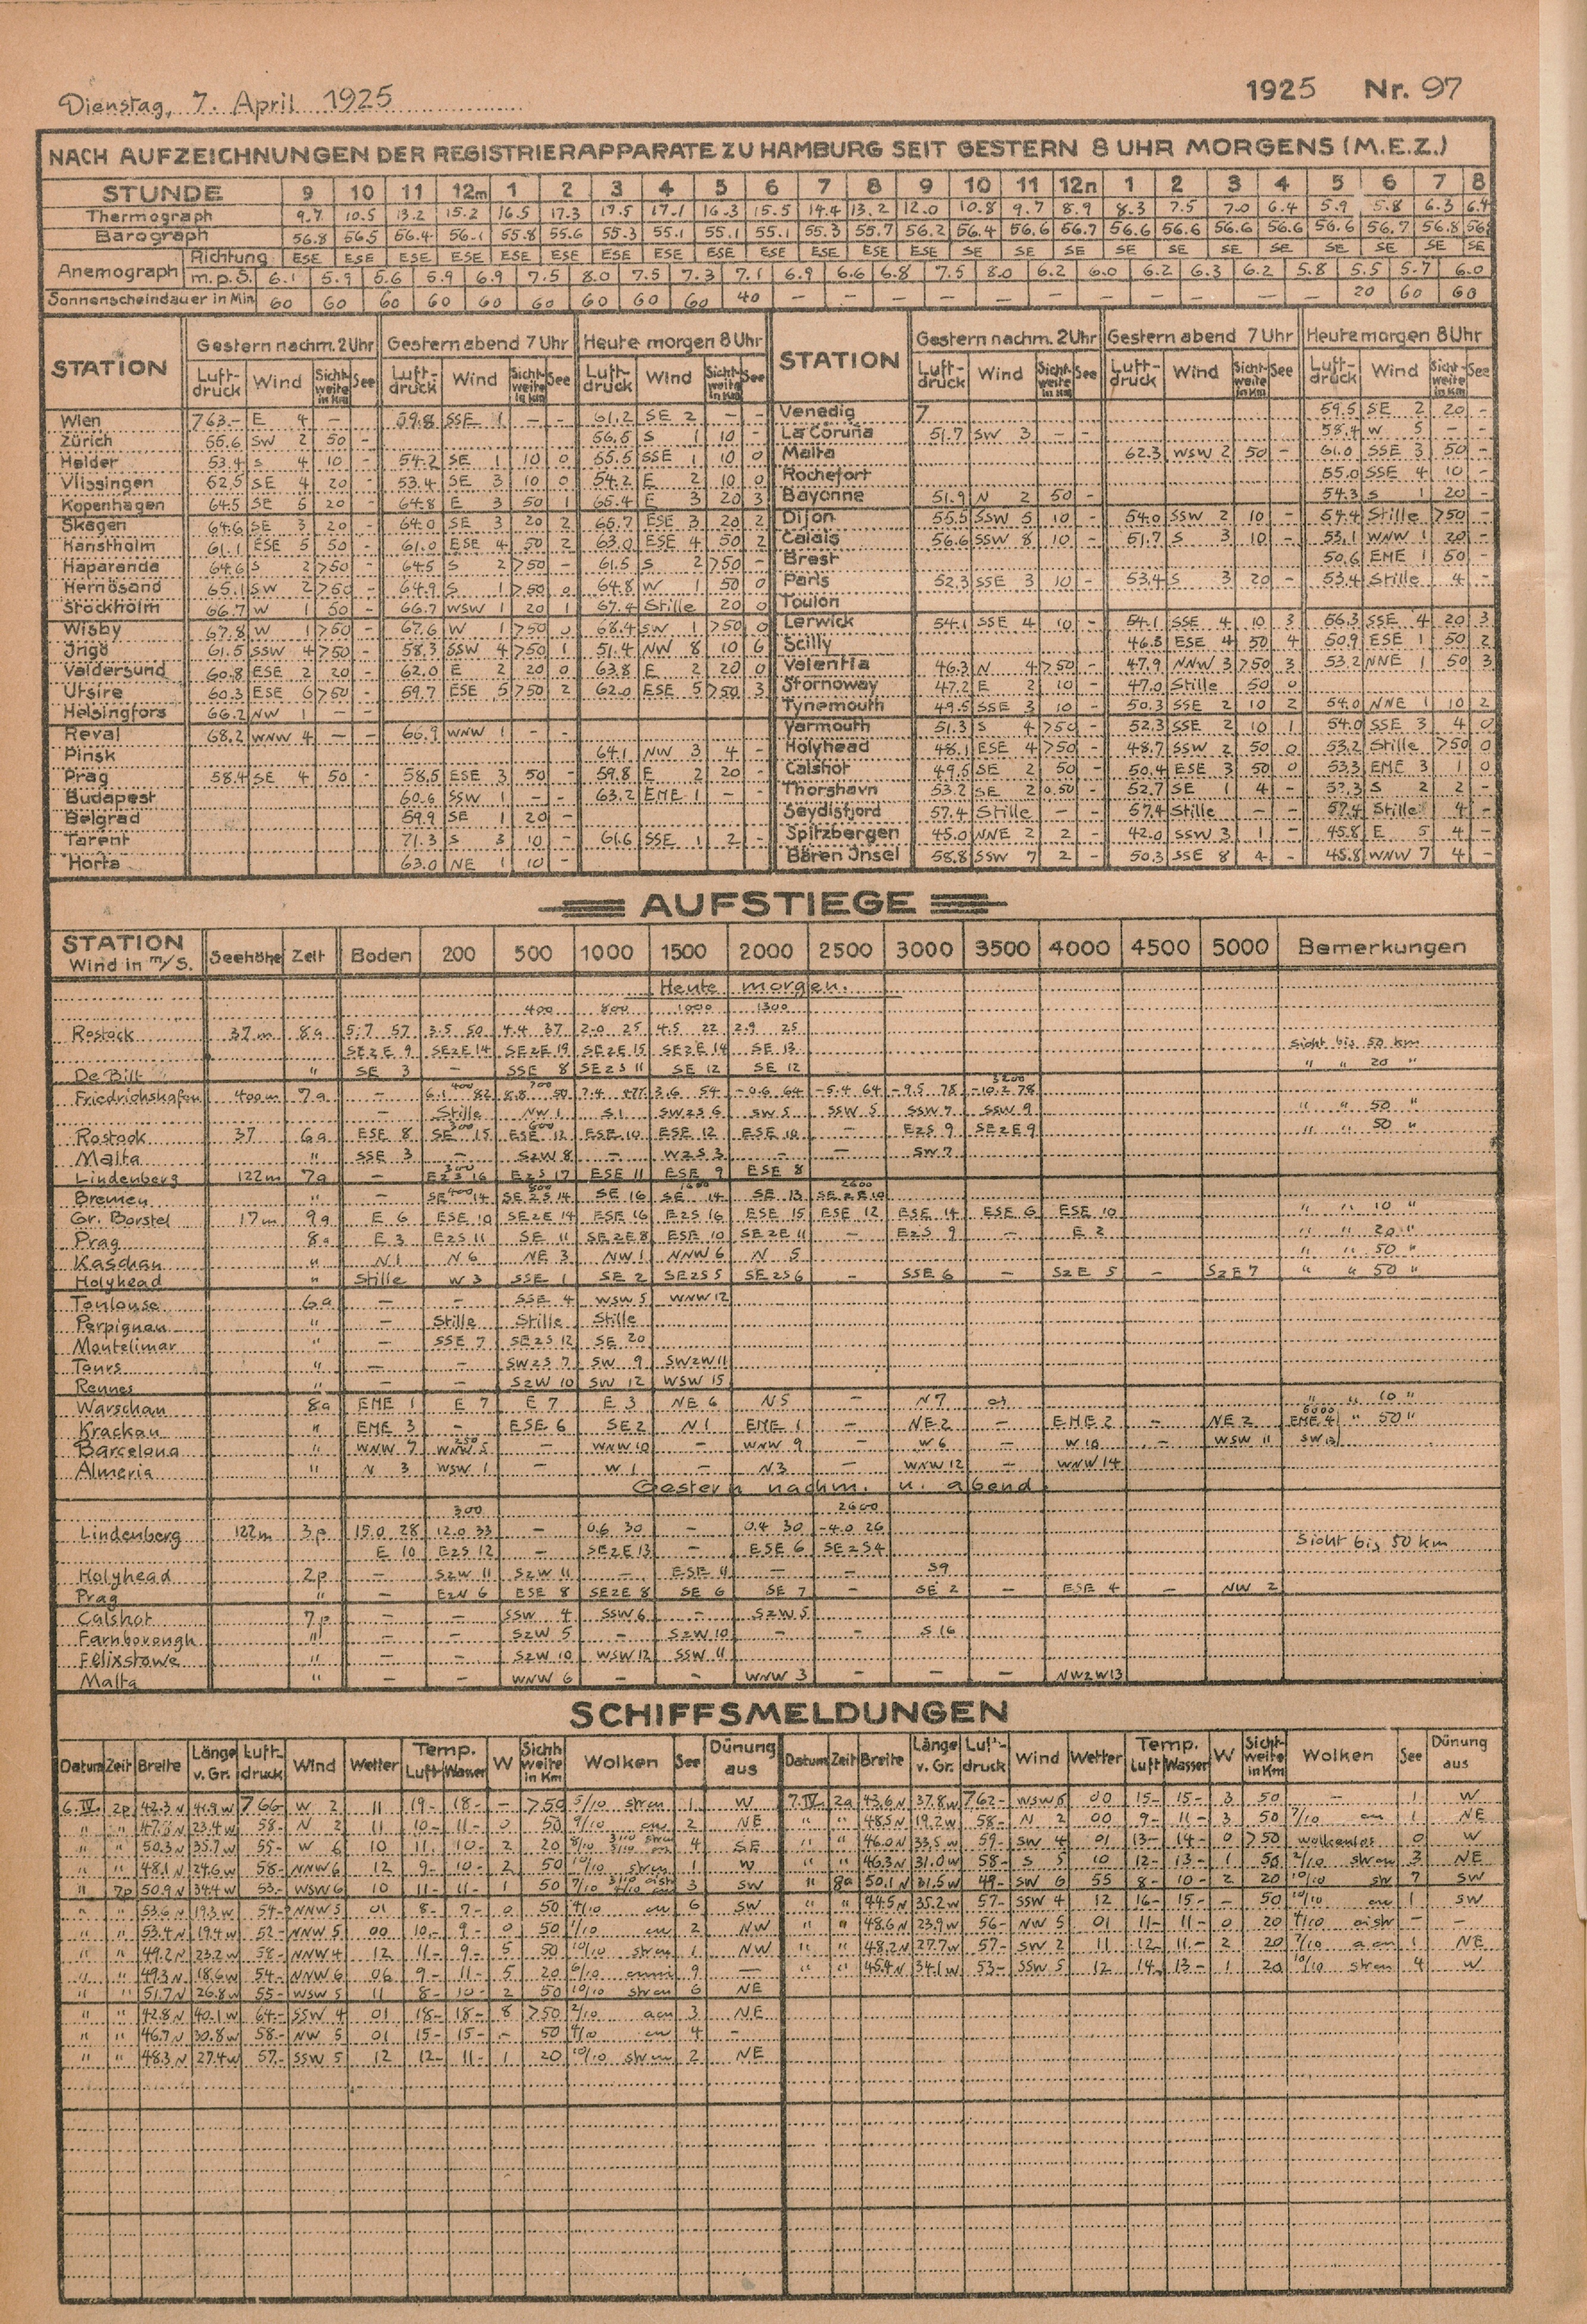 Dienstag, 7. April 1925
1925 Nr. 97
NACH AUFZEICHNUNGEN DER REGISTRIERAPPARATE ZU HAMBURG SEIT GESTERN 8 UHR MORGENS (M.E.Z.)
STUNDE 9 10 11 12m 1 2 3 4 5 6 7 8 9 10 11 12n 1 2 3 4 5 6 7 8
Thermograph 9.7 10.5 13.2 15.2 16.5 17.3 17.5 17.1 16.3 15.5 14.4 13.2 12.0 10.8 9.7 8.9 8.3 7.5 7.0 6.4 5.9 5.8 6.3 6.4
Barograph 56.8 56.5 56.4 56.1 55.8 55.6 55.3 55.1 55.1 55.1 55.3 55.7 56.2 56.4 56.6 56.7 56.6 56.6 56.6 56.6 56.6 56.7 56.8
Anemograph Richtung ESE ESE ESE ESE ESE ESE ESE ESE ESE ESE ESE ESE ESE SE SE SE SE SE SE SE SE SE SE SE
m.p.S. 6.1 5.9 5.6 5.9 6.9 7.5 8.0 7.5 7.3 7.1 6.9 6.6 6.8 7.5 8.0 6.2 6.0 6.2 6.3 6.2 5.8 5.5 5.7 6.0
Sonnenscheindauer in Min 60 60 60 60 60 60 60 60 60 40 – – – – – – – – – – – 20 60 60
STATION Gestern nachm. 2 Uhr Gestern abend 7 Uhr Heute morgen 8 Uhr STATION Gestern nachm. 2 Uhr Gestern abend 7 Uhr Heute morgen 8 Uhr
Luft-druck Wind Sicht-weite in Km See Luft-druck Wind Sicht-weite in Km See Luft-druck Wind Sicht-weite in Km See Luft-druck Wind Sicht-weite in Km See Luft-druck Wind Sicht-weite in Km See Luft-druck Wind Sicht-weite in Km See
Wien 763.– E 4 – 59.8 SSE 1 – – 61.2 SE 2 – – Venedig 7 59.5 SE 2 20 –
Zürich 55.6 SW 2 50 – 56.5 S 1 10 – La Coruña 51.7 SW 3 – – 58.4 W 5 – –
Helder 53.4 S 4 10 – 54.2 SE 1 10 0 55.5 SSE 1 10 0 Malta 62.3 WSW 2 50 – 61.0 SSE 3 50 –
Vlissingen 52.5 SE 4 20 – 53.4 SE 3 10 0 54.2 E 2 10 0 Rochefort 55.0 SSE 4 10 –
Kopenhagen 64.5 SE 5 20 – 64.8 E 3 50 1 65.4 E 3 20 3 Bayonne 51.9 N 2 50 – 54.3 S 1 20 –
Skagen 64.6 SE 3 20 – 64.0 SE 3 20 2 65.7 ESE 3 20 2 Dijon 55.5 SSW 5 10 – 54.0 SSW 2 10 – 54.4 Stille >50 –
Hanstholm 61.1 ESE 5 50 – 61.0 ESE 4 50 2 63.0 ESE 4 50 2 Calais 56.6 SSW 8 10 – 51.7 S 3 10 – 53.1 WNW 1 20 –
Haparanda 64.6 S 2 >50 – 64.5 S 2 >50 – 61.5 S 2 >50 – Brest 50.6 ENE 1 50 –
Hernösand 65.1 SW 2 >50 – 64.9 S 1 >50 0 64.8 W 1 50 0 Paris 52.3 SSE 3 10 – 53.4 S 3 20 – 53.4 Stille 4 –
Stockholm 66.7 W 1 50 – 66.7 WSW 1 20 1 67.4 Stille 20 0 Toulon
Wisby 67.8 W 1 >50 – 67.6 W 1 >50 0 68.4 SW 1 >50 0 Lerwick 54.1 SSE 4 10 – 54.1 SSE 4 10 3 56.3 SSE 4 20 3
Ingö 61.5 SSW 4 >50 – 58.3 SSW 4 >50 1 51.4 NW 8 10 6 Scilly 46.8 ESE 4 50 4 50.9 ESE 1 50 2
Valdersund 60.8 ESE 2 20 – 62.0 E 2 20 0 63.8 E 2 20 0 Valentia 46.3 N 4 >50 – 47.9 NNW 3 >50 3 53.2 NNE 1 50 3
Utsire 60.3 ESE 6 >50 – 59.7 ESE 5 >50 2 62.0 ESE 5 >50 3 Stornoway 47.2 E 2 10 – 47.0 Stille 50 0
Helsingfors 66.2 NW 1 – – Tynemouth 49.5 SSE 3 10 – 50.3 SSE 2 10 2 54.0 NNE 1 10 2
Reval 68.2 WNW 4 – – 66.9 WNW 1 – – Yarmouth 51.3 S 4 >50 – 52.3 SSE 2 10 1 54.0 SSE 3 4 0
Pinsk 64.1 NW 3 4 – Holyhead 48.1 ESE 4 >50 – 48.7 SSW 2 50 0 53.2 Stille >50 0
Prag 58.4 SE 4 50 – 58.5 ESE 3 50 – 59.8 E 2 20 – Calshot 49.5 SE 2 50 – 50.4 ESE 3 50 0 53.3 ENE 3 1 0
Budapest 60.6 SSW 1 – – 63.2 ENE 1 – – Thorshavn 53.2 SE 2 0.50 – 52.7 SE 1 4 – 53.3 S 2 2 –
Belgrad 59.9 SE 1 20 – Seydisfjord 57.4 Stille – – 57.4 Stille – – 57.4 Stille 4 –
Tarent 71.3 S 3 10 – 61.6 SSE 1 2 – Spitzbergen 45.0 NNE 2 2 – 42.0 SSW 3 1 – 45.8 E 5 4 –
Horta 63.0 NE 1 10 – Bären Insel 58.8 SSW 7 2 – 50.3 SSE 8 4 – 45.8 WNW 7 4 –
AUFSTIEGE
STATION Wind in m/S. Seehöhe Zeit Boden 200 500 1000 1500 2000 2500 3000 3500 4000 4500 5000 Bemerkungen
Heute morgen.
400 800 1000 1300
Rostock 37m 8a 5.7 57 3.5 50 4.4 37 2.0 25 4.5 22 2.9 25
SEzE 9 SEzE 14 SEzE 19 SEzE 15 SEzE 14 SE 13 Sicht bis 50 km
De Bilt " SE 3 – SSE 8 SEzS 11 SE 12 SE 12 " " 20 "
400 700 3200
Friedrichshafen 400m 7a – 6.1 82 8.8 50 7.4 3.6 54 –0.6 64 –5.4 64 –9.5 78 –10.2 78
– Stille NW 1 S 1 SWzS 6 SW 5 SSW 5 SSW 7 SSW 9 " " 50 "
300 600
Rostock 37 6a ESE 8 SE 15 ESE 12 ESE 10 ESE 12 ESE 10 – EzS 9 SEzE 9 " " 50 "
Malta " SSE 3 – SzW 8 – WzS 3 – – SW 7
300
Lindenberg 122m 7a – EzS 16 EzS 17 ESE 11 ESE 9 ESE 8
400 800 1600 2600
Bremen " – SE 14 SEzS 14 SE 16 SE 14 SE 13 SEzE 10
Gr. Borstel 17m 9a E 6 ESE 10 SEzE 14 ESE 16 EzS 16 ESE 15 ESE 12 ESE 14 ESE 6 ESE 10 " " 10 "
Prag 8a E 3 EzS 11 SE 11 SEzE 8 ESE 10 SEzE 11 – EzS 9 – E 2 " " 20 "
Kaschau " N 1 N 6 NE 3 NW 1 NNW 6 N 5 " " 50 "
Holyhead " Stille W 3 SSE 1 SE 2 SEzS 5 SEzS 6 – SSE 6 – SzE 5 – SzE 7 " " 50 "
Toulouse 6a – – SSE 4 WSW 5 WNW 12
Perpignan " – Stille Stille Stille
Montelimar " – SSE 7 SEzS 12 SE 20
Tours " – – SWzS 7 SW 9 SWzW 11
Rennes " – – SzW 10 SW 12 WSW 15
Warschau 8a ENE 1 E 7 E 7 E 3 NE 6 N 5 – N 7 " " 10 "
6000
Krackau " ENE 3 – ESE 6 SE 2 N 1 ENE 1 – NE 2 – ENE 2 – NE 2 ENE 4 " 50 "
250
Barcelona " WNW 7 WNW 5 – WNW 10 – WNW 9 – W 6 – W 10 – WSW 11 SW 13
Almeria " N 3 WSW 1 – W 1 – N 3 – WNW 12 – WNW 14
Gestern nachm. u. abend
300 2600
Lindenberg 122m 3p 15.0 28 12.0 33 – 0.6 30 – 0.4 30 –4.0 26
E 10 EzS 12 – SEzE 13 – ESE 6 SEzS 4 Sicht bis 50 km
Holyhead 2p – SzW 11 SzW 11 – ESE 11 – – S 9
Prag " – EzN 6 ESE 8 SEzE 8 SE 6 SE 7 – SE 2 – ESE 4 – NW 2
Calshot 7p – – SSW 4 SSW 6 – SzW 5
Farnborough " – – SzW 5 – SzW 10 – – S 16
Felixstowe " – – SzW 10 WSW 12 SSW 11
Malta " – – WNW 6 – – WNW 3 – – – NWzW 13
SCHIFFSMELDUNGEN
Datum Zeit Breite Länge v. Gr. Luft-druck Wind Wetter Temp. Luft Wasser W Sicht-weite in Km Wolken See Dünung aus Datum Zeit Breite Länge v. Gr. Luft-druck Wind Wetter Temp. Luft Wasser W Sicht-weite in Km Wolken See Dünung aus
6.IV. 2p 42.3 N 41.9 W 766– W 2 11 19– 18– – >50 5/10 strcu 1 W 7.IV. 2a 43.6 N 37.8 W 762– WSW 6 00 15– 15– 3 50 – 1 W
" " 47.3 N 23.4 W 58– N 2 11 10– 11– 0 50 9/10 cu 2 NE " " 48.5 N 19.2 W 58– N 2 00 9– 11– 3 50 7/10 cu 1 NE
" " 50.3 N 35.7 W 55– W 6 10 11– 10– 2 20 8/10 4 SE " " 46.0 N 33.5 W 59– SW 4 01 13– 14– 0 >50 wolkenlos 0 W
" " 48.1 N 24.6 W 58– NNW 6 12 9– 10– 2 50 10/10 strcu 1 W " " 46.3 N 31.0 W 58– S 5 10 12– 13– 1 50 2/10 strcu 3 NE
" 7p 50.9 N 34.4 W 53– WSW 6 10 11– 11– 1 50 7/10 3 SW " 8a 50.1 N 31.5 W 49– SW 6 55 8– 10– 2 20 10/10 str 7 SW
" " 53.6 N 19.3 W 54– NNW 5 01 8– 7– 0 50 4/10 cu 6 SW " " 44.5 N 35.2 W 57– SSW 4 12 16– 15– – 50 10/10 cu 1 SW
" " 53.4 N 19.4 W 52– NNW 5 00 10– 9– 0 50 1/10 cu 2 NW " " 48.6 N 23.9 W 56– NW 5 01 11– 11– 0 20 4/10 cistr – –
" " 49.2 N 23.2 W 58– NNW 4 12 11– 9– 5 50 10/10 strcu 1 NW " " 48.2 N 27.7 W 57– SW 2 11 12– 11– 2 20 7/10 acu 1 NE
" " 49.3 N 18.6 W 54– NNW 6 06 9– 11– 5 20 6/10 cuni 9 – " " 45.4 N 34.1 W 53– SSW 5 12 14– 13– 1 20 10/10 strcu 4 W
" " 51.7 N 26.8 W 55– WSW 5 11 8– 10– 2 50 10/10 strcu 6 NE
" " 42.8 N 40.1 W 64– SSW 4 01 18– 18– 8 >50 2/10 acu 3 NE
" " 46.7 N 30.8 W 58– NW 5 01 15– 15– – 50 4/10 cu 4 –
" " 48.3 N 27.4 W 57– SSW 5 12 12– 11– 1 20 10/10 strcu 2 NE